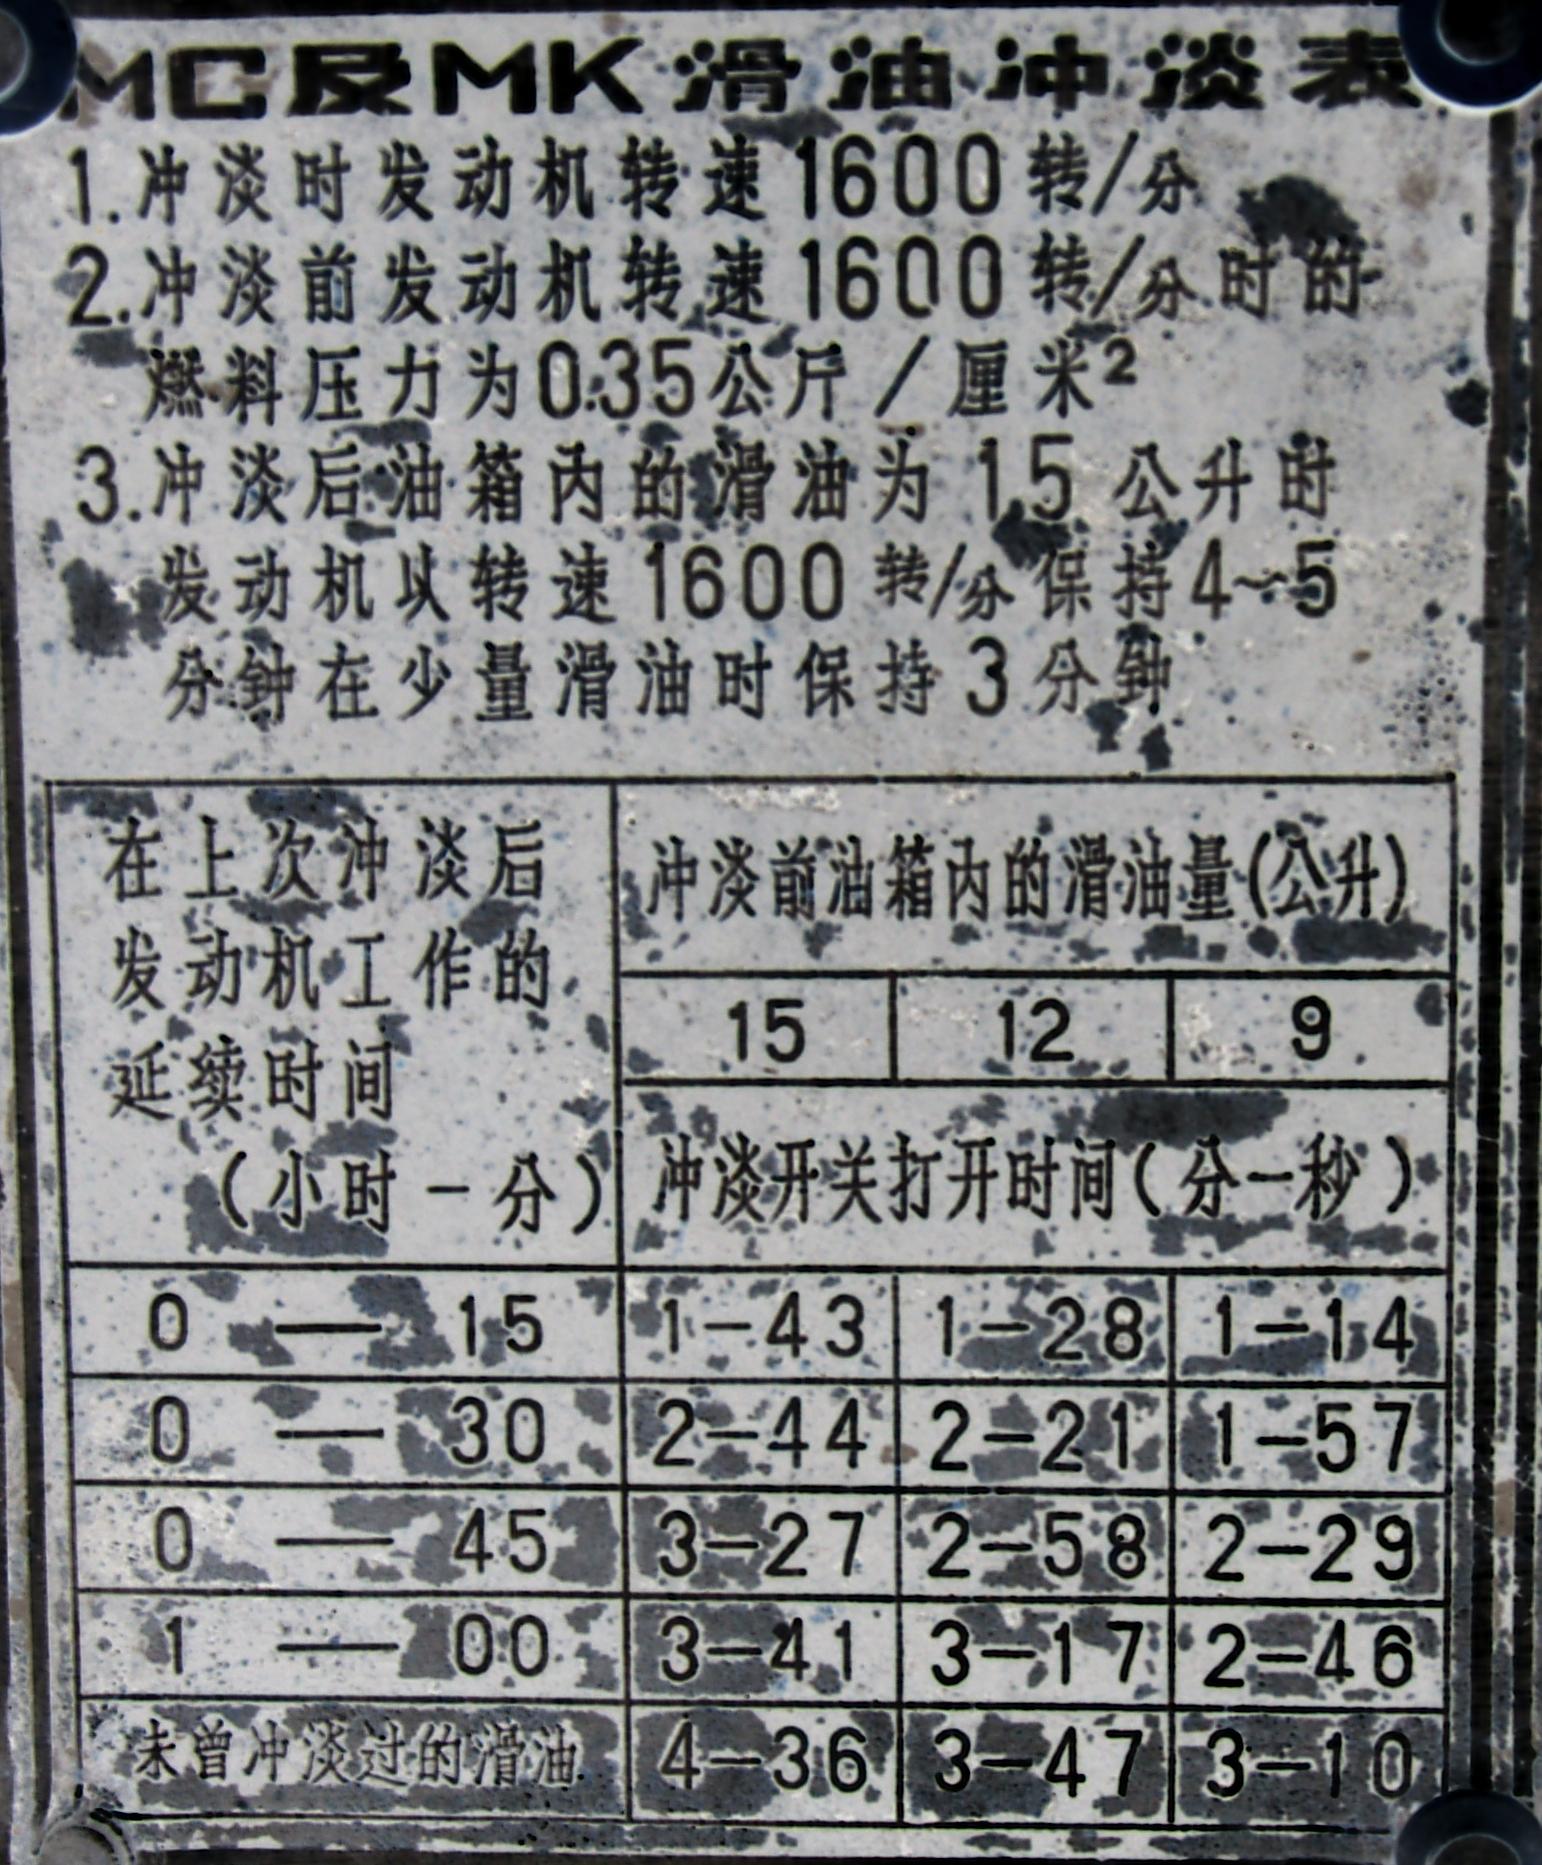 MC及MK滑油冲淡表
1.冲淡时发动机转速1600转/分
2.冲淡前发动机转速1600转/分时的
燃料压力为0.35公斤/厘米²
3.冲淡后油箱内的滑油为15公升时
发动机以转速1600转/分保持4~5
分钟在少量滑油时保持3分钟
在上次冲淡后
发动机工作的
延续时间
(小时-分)
冲淡前油箱内的滑油量(公升)
15 12 9
冲淡开关打开时间(分-秒)
0 — 15 1-43 1-28 1-14
0 — 30 2-44 2-21 1-57
0 — 45 3-27 2-58 2-29
1 — 00 3-41 3-17 2-46
未曾冲淡过的滑油 4-36 3-47 3-10